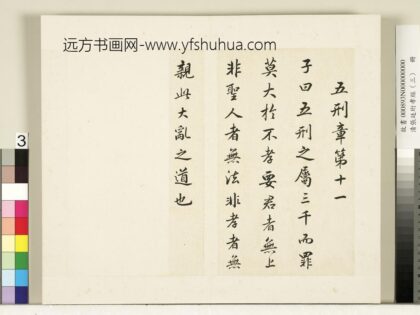 远方书画网-www.yfshuhua.com
五刑章第十一
子曰五刑之屬三千而罪
莫大於不孝要君者無上
非聖人者無法非孝者無
親此大亂之道也
3